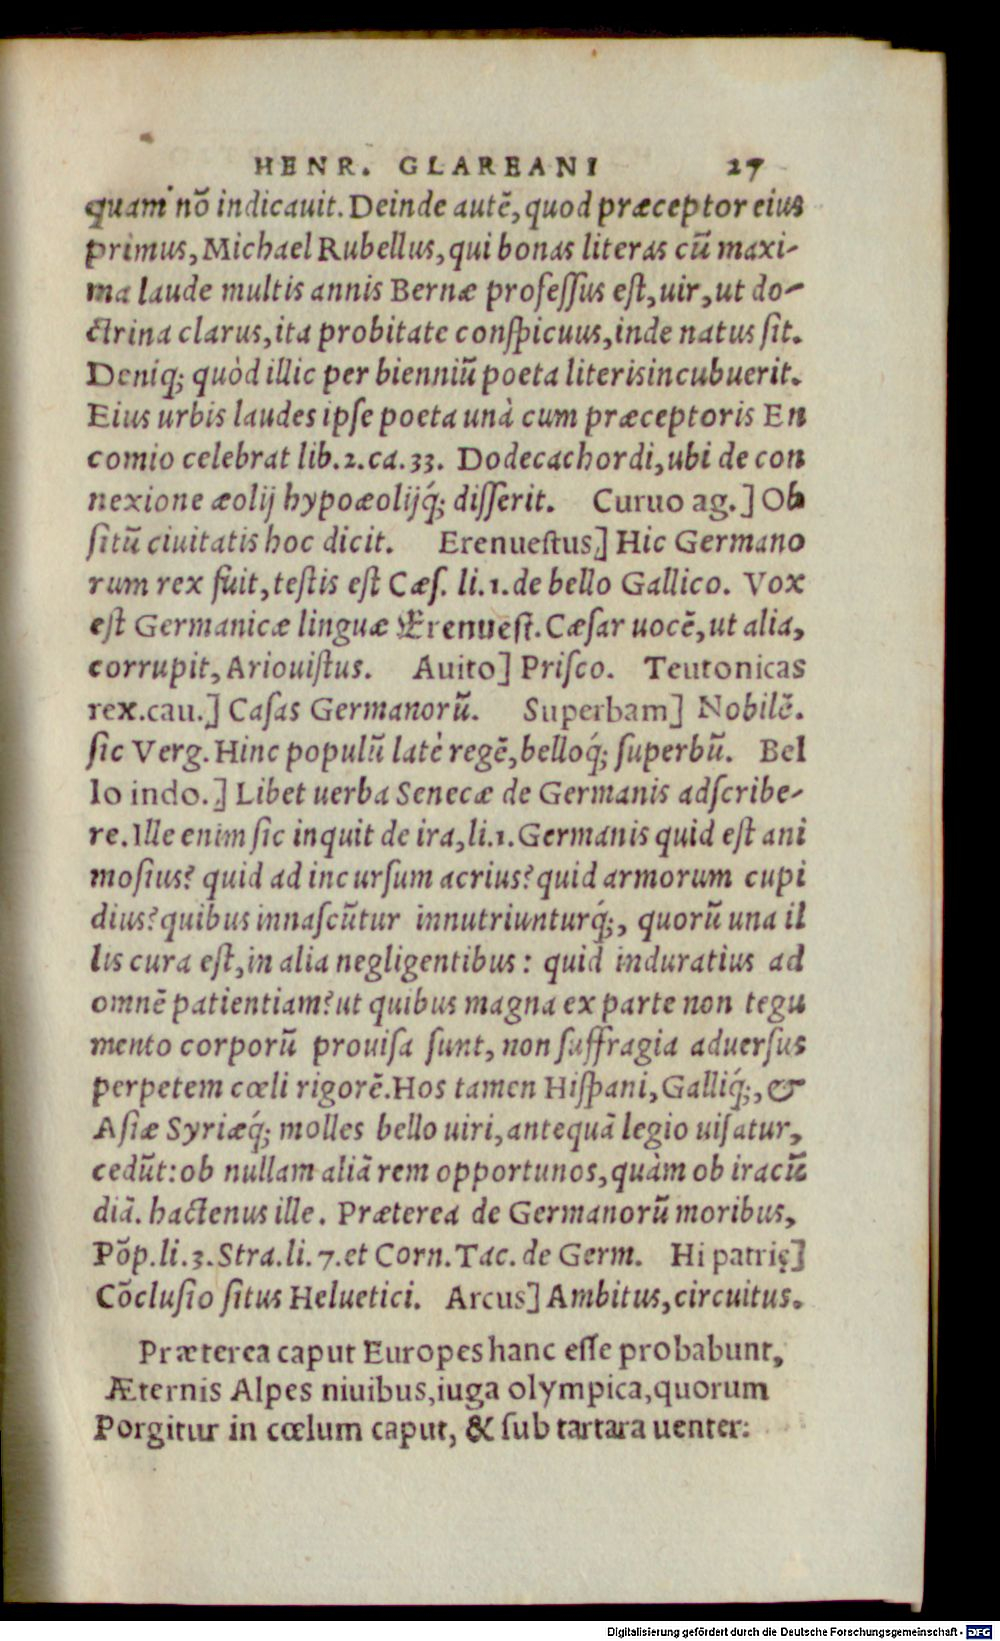 HENR. GLAREANI 27
quam nõ indicauit. Deinde autẽ, quod præceptor eius
primus, Michael Rubellus, qui bonas literas cũ maxi-
ma laude multis annis Bernæ professus est, uir, ut do-
ctrina clarus, ita probitate conspicuus, inde natus sit.
Deniq; quòd illic per bienniũ poeta literis incubuerit.
Eius urbis laudes ipse poeta unà cum præceptoris En
comio celebrat lib.2.ca.33. Dodecachordi, ubi de con
nexione æolij hypoæolijq́; disserit. Curuo ag.] Ob
sitũ ciuitatis hoc dicit. Erenuestus] Hic Germano
rum rex fuit, testis est Cæs. li.1. de bello Gallico. Vox
est Germanicæ linguæ Erenuest. Cæsar uocẽ, ut alia,
corrupit, Ariouistus. Auito] Prisco. Teutonicas
rex.cau.] Casas Germanorũ. Superbam] Nobilẽ.
sic Verg. Hinc populũ latè regẽ, belloq́; superbũ. Bel
lo indo.] Libet uerba Senecæ de Germanis adscribe-
re. Ille enim sic inquit de ira, li.1. Germanis quid est ani
mosius? quid ad incursum acrius? quid armorum cupi
dius? quibus innascũtur innutriunturq́;, quorũ una il
lis cura est, in alia negligentibus: quid induratius ad
omnẽ patientiam? ut quibus magna ex parte non tegu
mento corporũ prouisa sunt, non suffragia aduersus
perpetem cœli rigorẽ. Hos tamen Hispani, Galliq́;, &
Asiæ Syriæq́; molles bello uiri, antequã legio uisatur,
cedũt: ob nullam aliã rem opportunos, quàm ob iracũ
diã. hactenus ille. Præterea de Germanorũ moribus,
Põp. li.3. Stra. li.7. et Corn. Tac. de Germ. Hi patrię]
Cõclusio situs Heluetici. Arcus] Ambitus, circuitus.
Præterea caput Europes hanc esse probabunt,
Æternis Alpes niuibus, iuga olympica, quorum
Porgitur in cœlum caput, & sub tartara uenter:
Digitalisierung gefördert durch die Deutsche Forschungsgemeinschaft - DFG